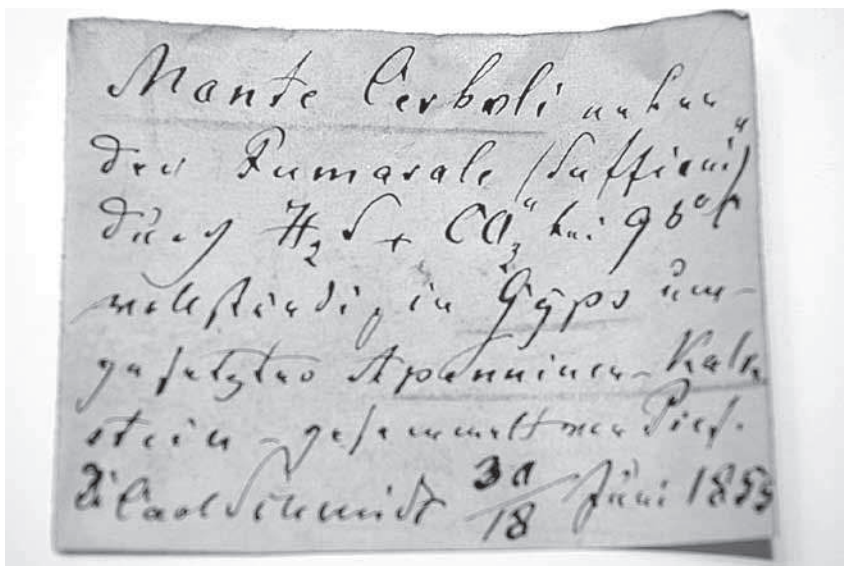 Monte Cerboli unter
der Fumarole (Suffioni)
durch H₂S + CO₂ bei
vollständig in Gyps um-
gesetzter Apenninen-Kalk
stein - gesammelt von Prof.
Dr Carl Schmidt 30/18 Juni 1855